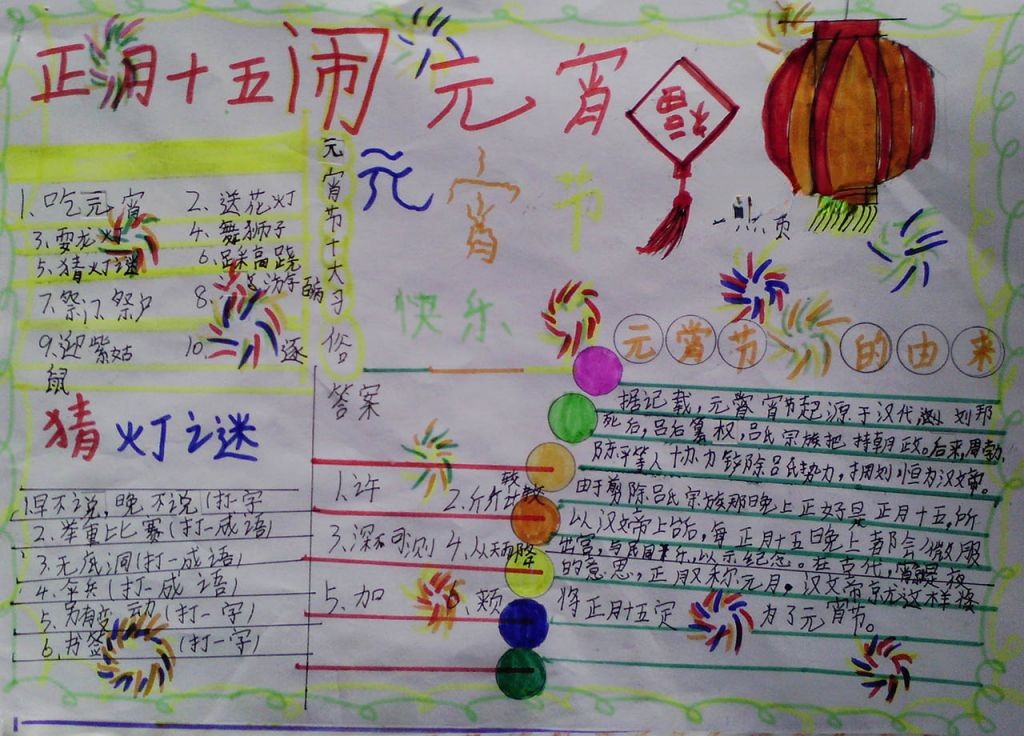 正月十五闹元宵
福
元宵节
快乐
元宵节十大习俗
1、吃元宵 2、送花灯
3、耍龙灯 4、舞狮子
5、猜灯谜 6、踩高跷
7、祭门、祭户 8、
9、迎紫姑 10、逐
鼠
猜灯之谜
1.早不说,晚不说(打一字
2.举重比赛(打一成语)
3、无底洞(打一成语)
4、伞兵(打一成语)
5、另有变动(打一字)
6、书签(打一字)
答案
1、许 2、斤斤计较
3、深不可测 4、从天而降
5、加 6、颊
元宵节的由来
据记载,元宵节起源于汉代,刘邦
死后,吕后篡权,吕氏宗族把持朝政。后来,周勃、
陈平等人协力铲除吕氏势力,拥刘恒为汉文帝。
由于剪除吕氏宗族那晚上正好是正月十五,所
以汉文帝上台后,每正月十五晚上都会微服
出宫,与民同乐,以示纪念。在古代,
的意思,正月又称元月。汉文帝
将正月十五定为了元宵节。